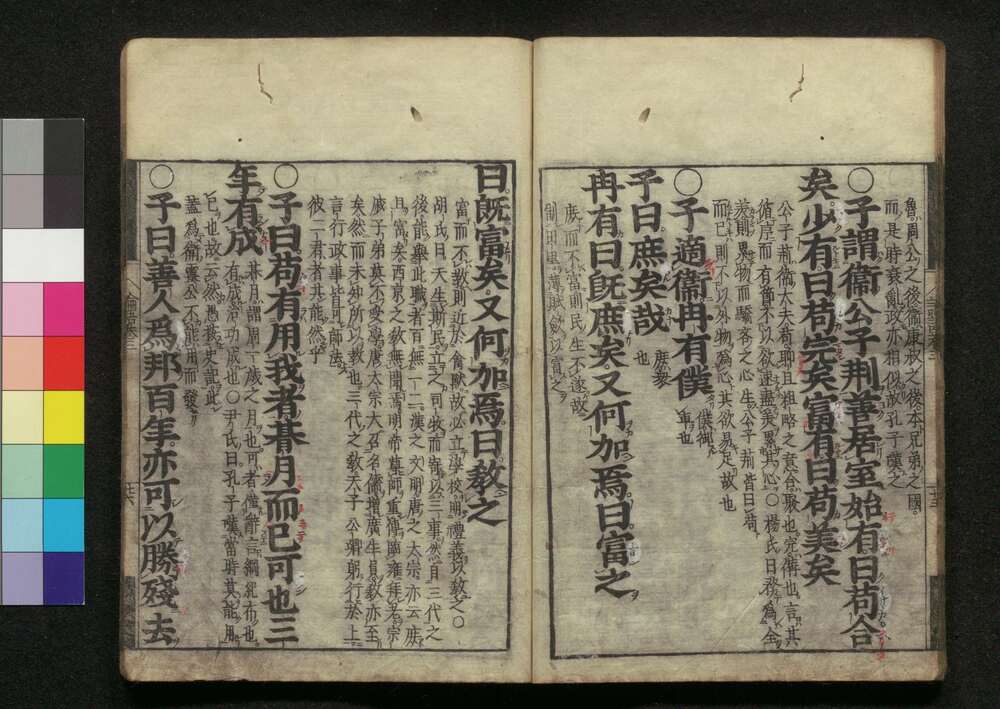 魯周公之後衞康叔之後本兄弟之國
而是時衰亂政亦相似故孔子嘆之
○子謂衞公子荊善居室始有曰苟合
矣少有曰苟完矣富有曰苟美矣
公子荊衞大夫苟聊且粗略之意合聚也完備也言其
循序而有節不以欲速盡美累其心○楊氏曰務為全
美則累物而驕吝之心生公子荊皆曰苟
而已則不以外物為心其欲易足故也
○子適衞冉有僕
僕御
車也
子曰庶矣哉
庶衆
也
冉有曰既庶矣又何加焉曰富之
庶而不富則民生不遂故
制田里薄賦歛以富之
曰既富矣又何加焉曰教之
富而不教則近於禽獸故必立學校明禮義以教之○
胡氏曰天生斯民立之司牧而寄以三事然自三代之
後能舉此職者百無一二漢之文明唐之太宗亦云庶
且富矣西京之教無聞焉明帝尊師重傅臨雍拜老宗
戚子弟莫不受學唐太宗大召名儒增廣生員教亦至
矣然而未知所以教也三代之教天子公卿躬行於上
言行政事皆可師法
彼二君者其能然乎
○子曰苟有用我者朞月而已可也三
年有成
朞月謂周一歲之月也可者僅辭言綱紀布也
有成治功成也○尹氏曰孔子嘆當時莫能用
己也故云然愚按史記此
蓋為衞靈公不能用而發
○子曰善人為邦百年亦可以勝殘去